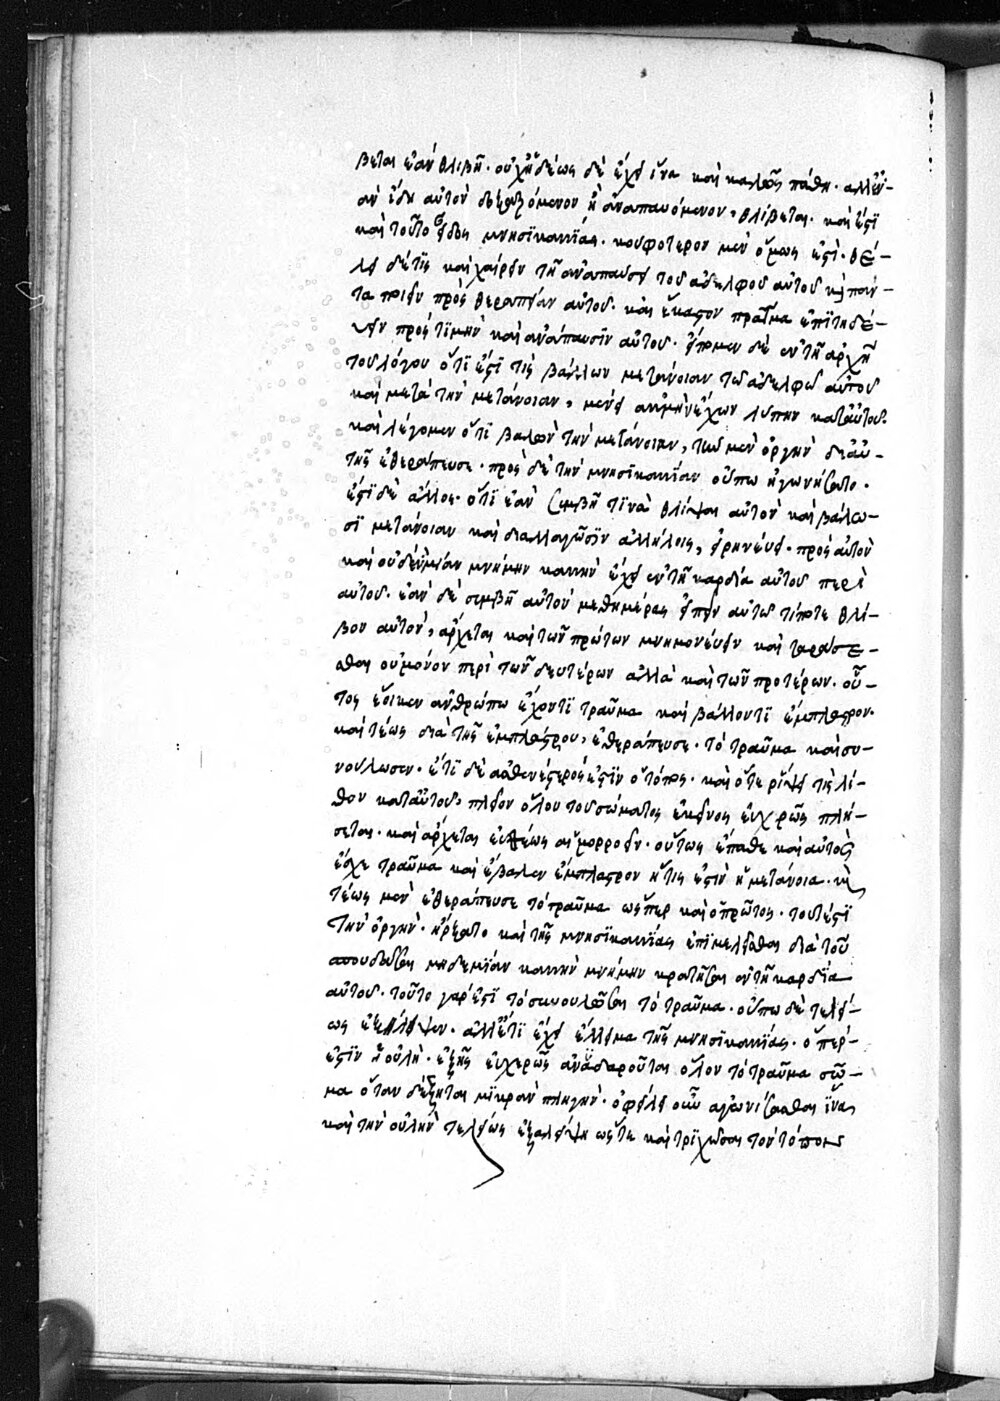 βεται ἐὰν θλιβῆ· οὐχ ἡδέως δὲ ἔχει ἵνα καὶ καλῶς πάθη· ἀλλ' ἐ-
ὰν ἴδη αὐτὸν δοξαζόμενον ἢ ἀναπαυόμενον, θλίβεται· καὶ ἔστι
καὶ τοῦτο εἶδος μνησικακίας· κουφότερον μὲν ὅμως ἐστί· θέ-
λει δέ τις καὶ χαίρειν τῆ ἀναπαύσει τοῦ ἀδελφοῦ αὐτοῦ καὶ πάν-
τα ποιεῖν πρὸς θεραπείαν αὐτοῦ· καὶ ἕκαστον πρᾶγμα ἐπιτηδεύ-
ειν πρὸς τιμὴν καὶ ἀνάπαυσιν αὐτοῦ· εἴπομεν δὲ ἐν τῆ ἀρχῆ
τοῦ λόγου ὅτι ἔστι τὶς βάλλων μετάνοιαν τῶ ἀδελφῶ αὐτοῦ
καὶ μετὰ τὴν μετάνοιαν, μένει ἀκμὴν ἔχων λύπην κατ' αὐτοῦ·
καὶ λέγομεν ὅτι βαλὼν τὴν μετάνοιαν, τὴν μὲν ὀργὴν δι' αὐ-
τῆς ἐθεράπευσε· πρὸς δὲ τὴν μνησικακίαν οὔπω ἠγωνίσατο·
ἔστι δὲ ἄλλος· ὅτι ἐὰν συμβῆ τινὰ θλίψαι αὐτὸν καὶ βάλω-
σι μετάνοιαν καὶ διαλλαγῶσιν ἀλλήλοις, εἰρηνεύει· πρὸς αὐτὸν
καὶ οὐδεμίαν μνήμην κακὴν ἔχει ἐν τῆ καρδία αὐτοῦ περὶ
αὐτοῦ· ἐὰν δὲ συμβῆ αὐτὸν μεθ' ἡμέρας εἰπεῖν αὐτῶ τίποτε θλί-
βον αὐτόν, ἄρχεται καὶ τῶν πρώτων μνημονεύειν καὶ ταράσσε-
σθαι οὐ μόνον περὶ τῶν δευτέρων ἀλλὰ καὶ τῶν προτέρων· οὗ-
τος ἔοικεν ἀνθρώπω ἔχοντι τραῦμα καὶ βάλλοντι ἔμπλαστρον·
καὶ τέως διὰ τῆς ἐμπλάστρου, ἐθεράπευσε· τὸ τραῦμα καὶ συ-
νούλωσεν· ἔτι δὲ ἀσθενέστερός ἐστιν ὁ τόπος· καὶ ὅτε ρίψει τις λί-
θον κατ' αὐτοῦ, πλεῖον ὅλου τοῦ σώματος ἐκεῖνος εὐχερῶς πλή-
σεται· καὶ ἄρχεται εὐθέως αἱμορροεῖν· οὕτως ἔπαθε καὶ αὐτὸς
ἔσχε τραῦμα καὶ ἔβαλεν ἔμπλαστρον ἥτις ἐστὶν ἡ μετάνοια· καὶ
τέως μὲν ἐθεράπευσε τὸ τραῦμα ὥσπερ καὶ ὁ πρῶτος· τουτέστι
τὴν ὀργήν· ἤρξατο καὶ τῆς μνησικακίας ἐπιμελεῖσθαι διὰ τοῦ
σπουδάζειν μηδεμίαν κακὴν μνήμην κρατῆσαι ἐν τῆ καρδία
αὐτοῦ· τοῦτο γάρ ἐστι τὸ συνουλῶσαι τὸ τραῦμα· οὔπω δὲ τελεί-
ως ἐξήλειψεν· ἀλλ' ἔτι ἔχει ἔλλειμα τῆς μνησικακίας· ὅπερ
ἐστὶν ἡ οὐλή· ἐξ ἧς εὐχερῶς ἀναδαροῦται ὅλον τὸ τραῦμα σῶ-
μα ὅταν δέξηται μικρὰν πληγήν· ὀφείλει οὖν ἀγωνίσασθαι ἵνα
καὶ τὴν οὐλὴν τελείως ἐξαλείψη ὥστε καὶ τριχῶσαι τὸν τόπον